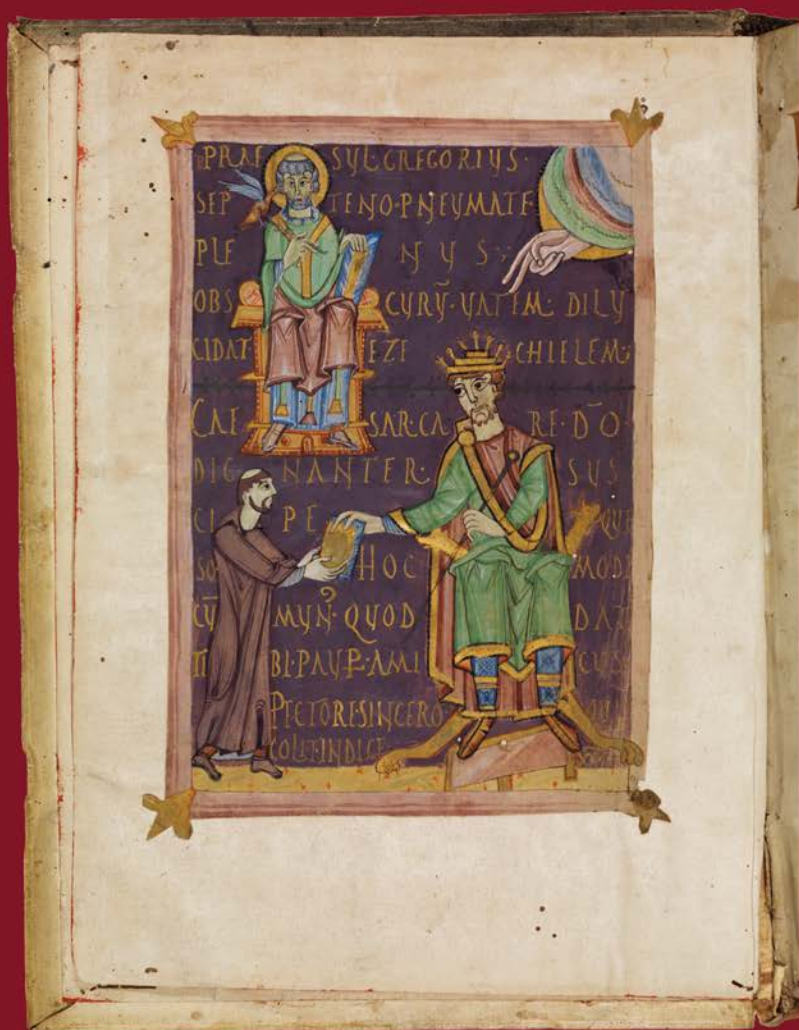 PRAE SYLGREGORIYS·
SEP TENO·PNEYMATE
PLE NYS
OBS CYRȲ·YATEM· DILY
CIDAT· EZE CHIELEM
CAE SAR·CA RE·D̄O·
DIG NANTER· SUS
CI PE QUE
SO HOC MODI
CȲ MYN·QYOD DAT
TI BI·PAYP·AMI CUS
PECTORE·SINCERO
COLIT·INDICE